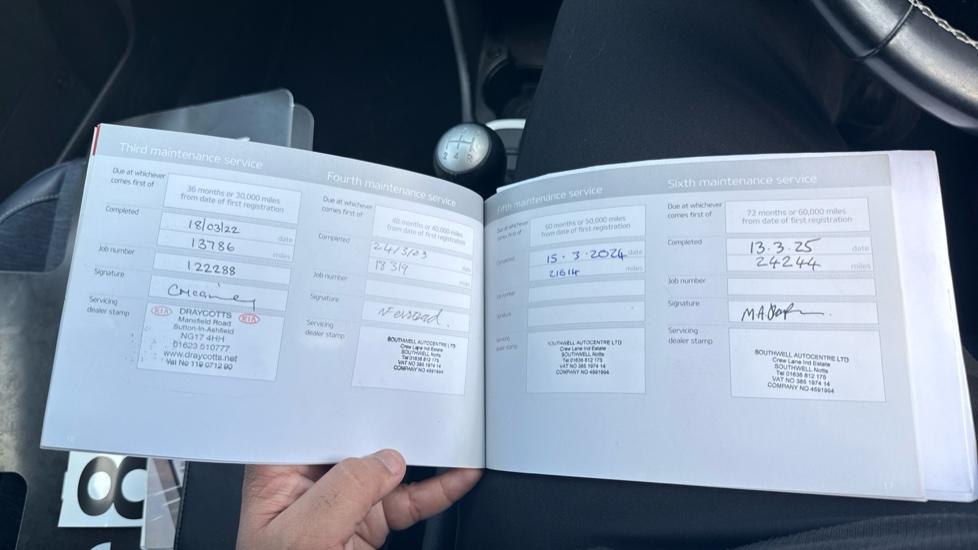 Third maintenance service
Due at whichever
comes first of
36 months or 30,000 miles
from date of first registration
Completed
18/03/22
date
13786
miles
Job number
122288
Signature
Servicing
dealer stamp
KIA
DRAYCOTTS
KIA
Mansfield Road
Sutton-In-Ashfield
NG17 4HH
01623 510777
www.draycotts.net
Vat No 119 0712 90
Fourth maintenance service
Due at whichever
comes first of
48 months or 40,000 miles
from date of first registration
Completed
24/3/23
date
18319
miles
Job number
Signature
Servicing
dealer stamp
SOUTHWELL AUTOCENTRE LTD
Crew Lane Ind Estate
SOUTHWELL Notts
Tel 01636 812 175
VAT NO 385 1974 14
COMPANY NO 4591994
Fifth maintenance service
Due at whichever
comes first of
60 months or 50,000 miles
from date of first registration
Completed
15.3.2024
date
21614
miles
Job number
Signature
Servicing
dealer stamp
SOUTHWELL AUTOCENTRE LTD
Crew Lane Ind Estate
SOUTHWELL Notts
Tel 01636 812 175
VAT NO 385 1974 14
COMPANY NO 4591994
Sixth maintenance service
Due at whichever
comes first of
72 months or 60,000 miles
from date of first registration
Completed
13.3.25
date
24244
miles
Job number
Signature
Servicing
dealer stamp
SOUTHWELL AUTOCENTRE LTD
Crew Lane Ind Estate
SOUTHWELL Notts
Tel 01636 812 175
VAT NO 385 1974 14
COMPANY NO 4591994